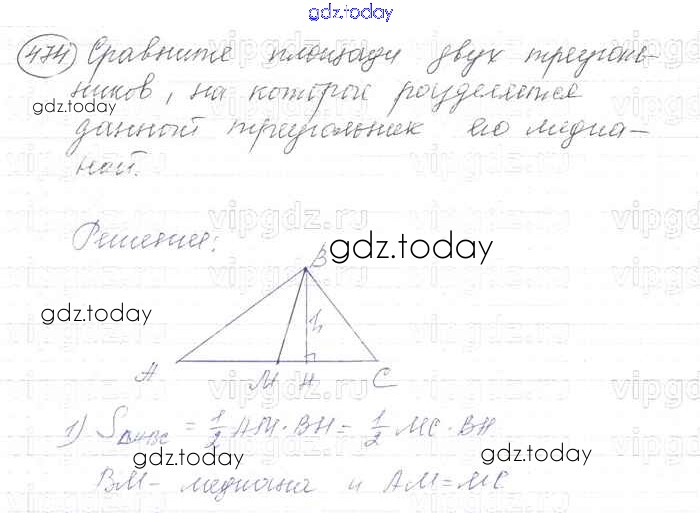 gdz.today
474 Сравните площади двух треуголь-
ников, на которой разделяется
gdz.today
данной треугольник его медиа-
ной.
vipgdz.ru
Решение:
gdz.today
B
gdz.today
h
A M H C
1) S = 1/2 AM · BH = 1/2 MC · BH
gdz.today gdz.today
BM - медиана и AM = MC